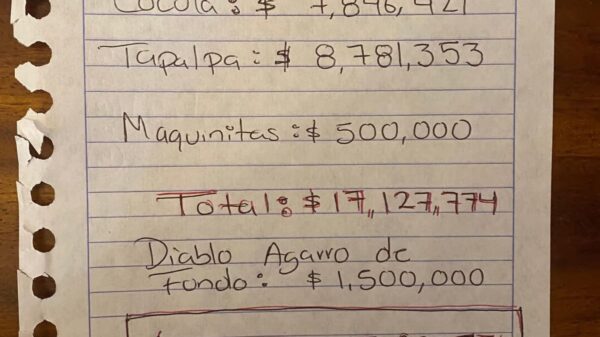 Cocula: $ 7,846,421
Tapalpa: $ 8,781,353
Maquinitas: $ 500,000
Total: $ 17,127,774
Diablo Agarro de
Fondo: $ 1,500,000